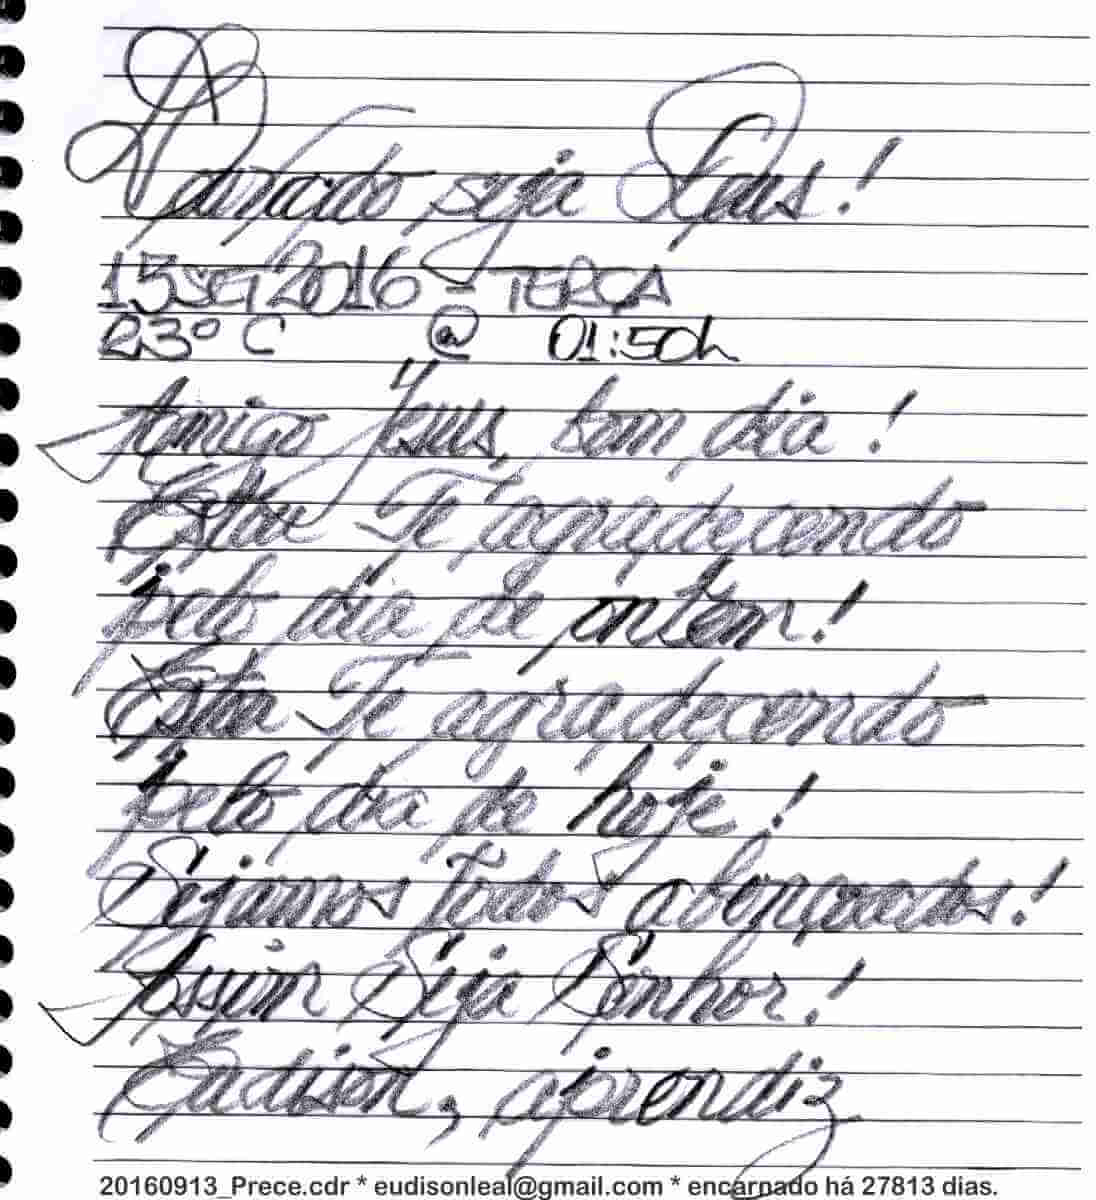 Louvado seja Deus!
13SET2016 - TERÇA
23º C @ 01:50h
Amigo Jesus, bom dia!
Estou Te agradecendo
pelo dia de ontem!
Estou Te agradecendo
pelo dia de hoje!
Sejamos todos abençoados!
Assim Seja Senhor!
Eudison, aprendiz
20160913_Prece.cdr * eudisonleal@gmail.com * encarnado há 27813 dias.